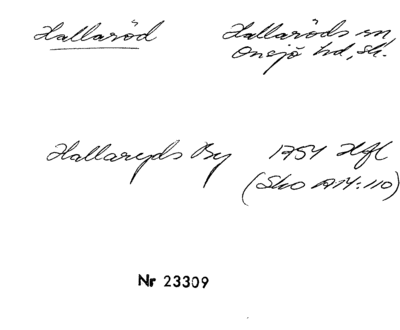 Hallaröd Hallaröds sn,
Onsjö hd, Sk.
Hallaryds By 1754 Hfl
(Sko A14:110)
Nr 23309